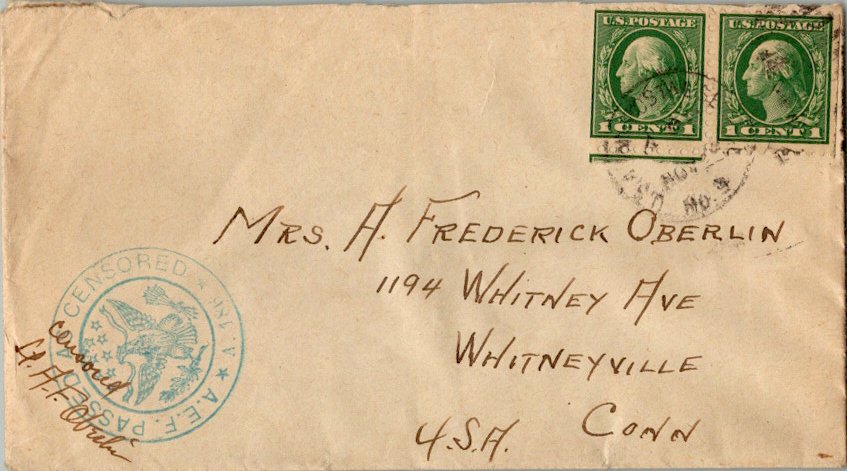 U.S. POSTAGE U.S. POSTAGE
1 CENT 1 1 CENT 1
NOV
NO.
MRS. A. FREDERICK OBERLIN
1194 WHITNEY AVE
WHITNEYVILLE
CONN
U.S.A.
A.E.F. PASSED AS CENSORED
censored
A.F. Oberlin